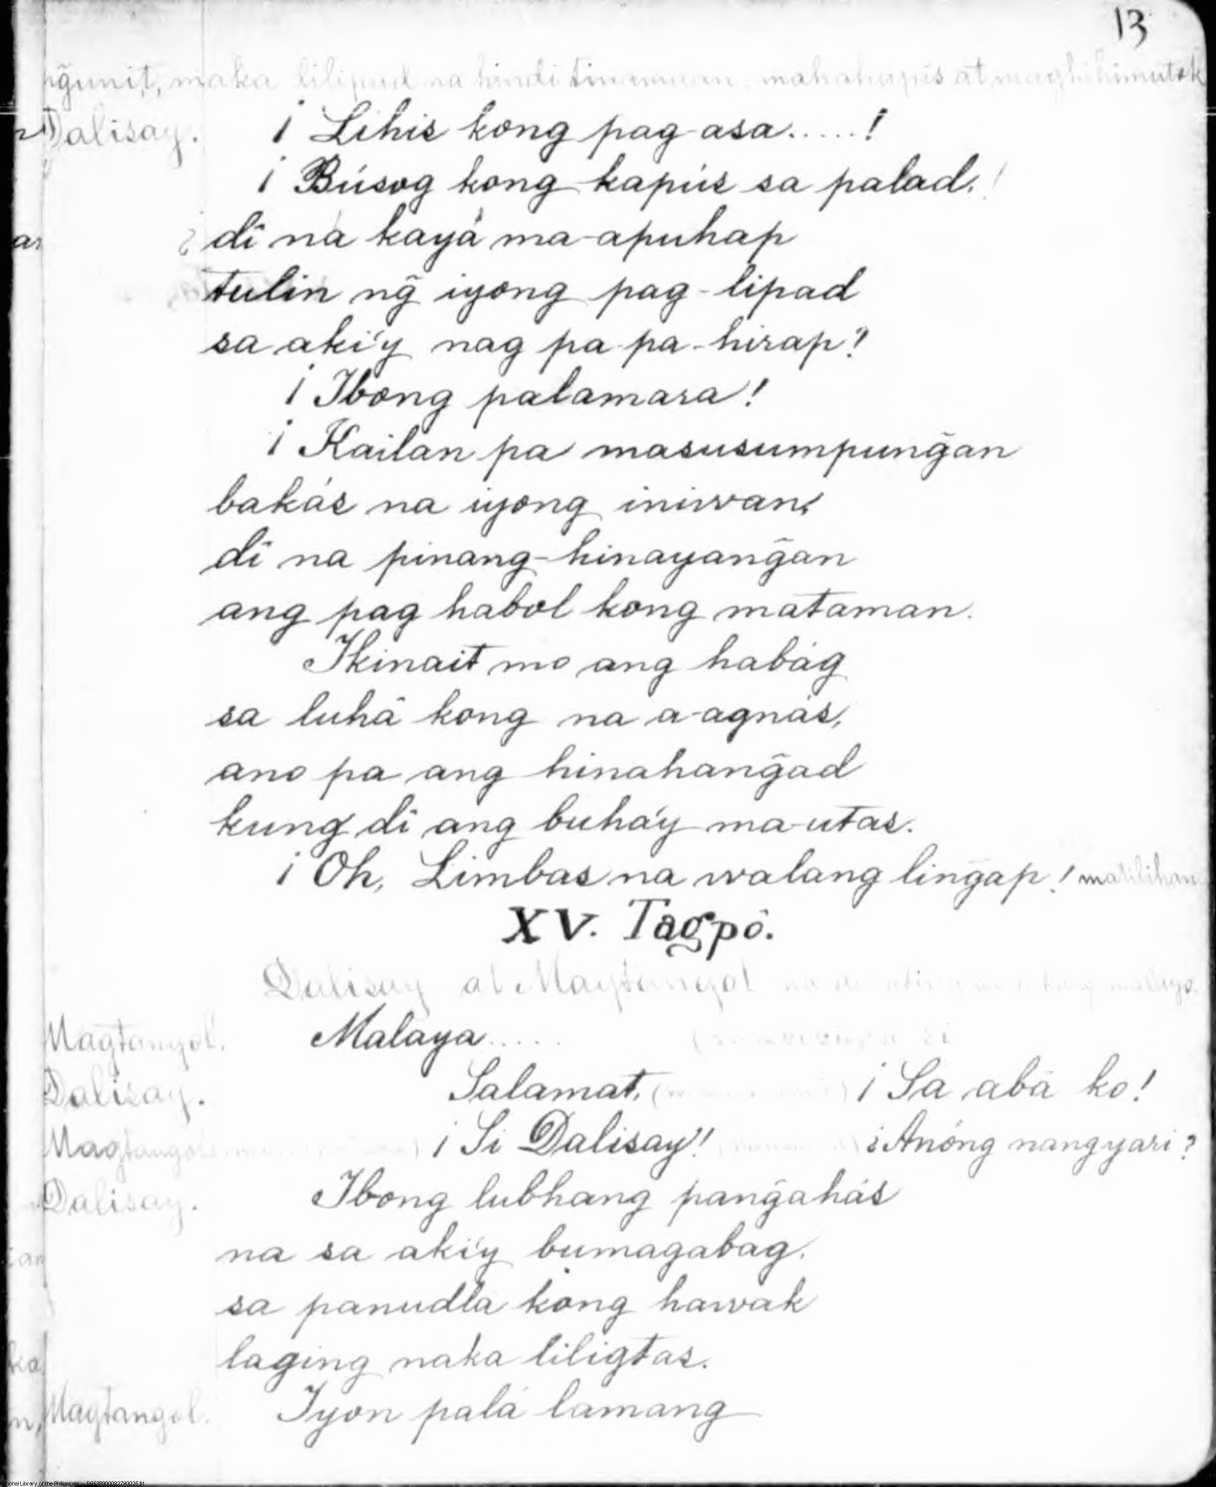 13
ng̃unit, maka lilipad na hindi tinamaan, mahahapis at maghihimutok
Dalisay. ¡ Lihis kong pag-asa.....!
¡ Búsog kong kapús sa palad!
¿ dî na kayâ ma-apuhap
tulin ng̃ iyong pag-lipad
sa aki'y nag pa-pa-hirap?
¡ Ibong palamara!
¡ Kailan pa masusumpung̃an
bakás na iyong iniwan,
dî na pinang-hinayang̃an
ang pag habol kong mataman.
Ikinait mo ang habág
sa luhâ kong na a-agnás,
ano pa ang hinahang̃ad
kung di ang buháy ma-utas.
¡ Oh, Limbas na walang ling̃ap!
XV. Tagpô.
Dalisay at Magtangol
Magtangol. Malaya.....
Dalisay. Salamat, ¡ Sa abâ ko!
Magtangol ¡ Si Dalisay!! ¿Anóng nangyari?
Dalisay. Ibong lubhang pang̃ahás
na sa aki'y bumagabag.
sa panudla kong hawak
laging naka liligtas.
Magtangol. Iyon palá lamang